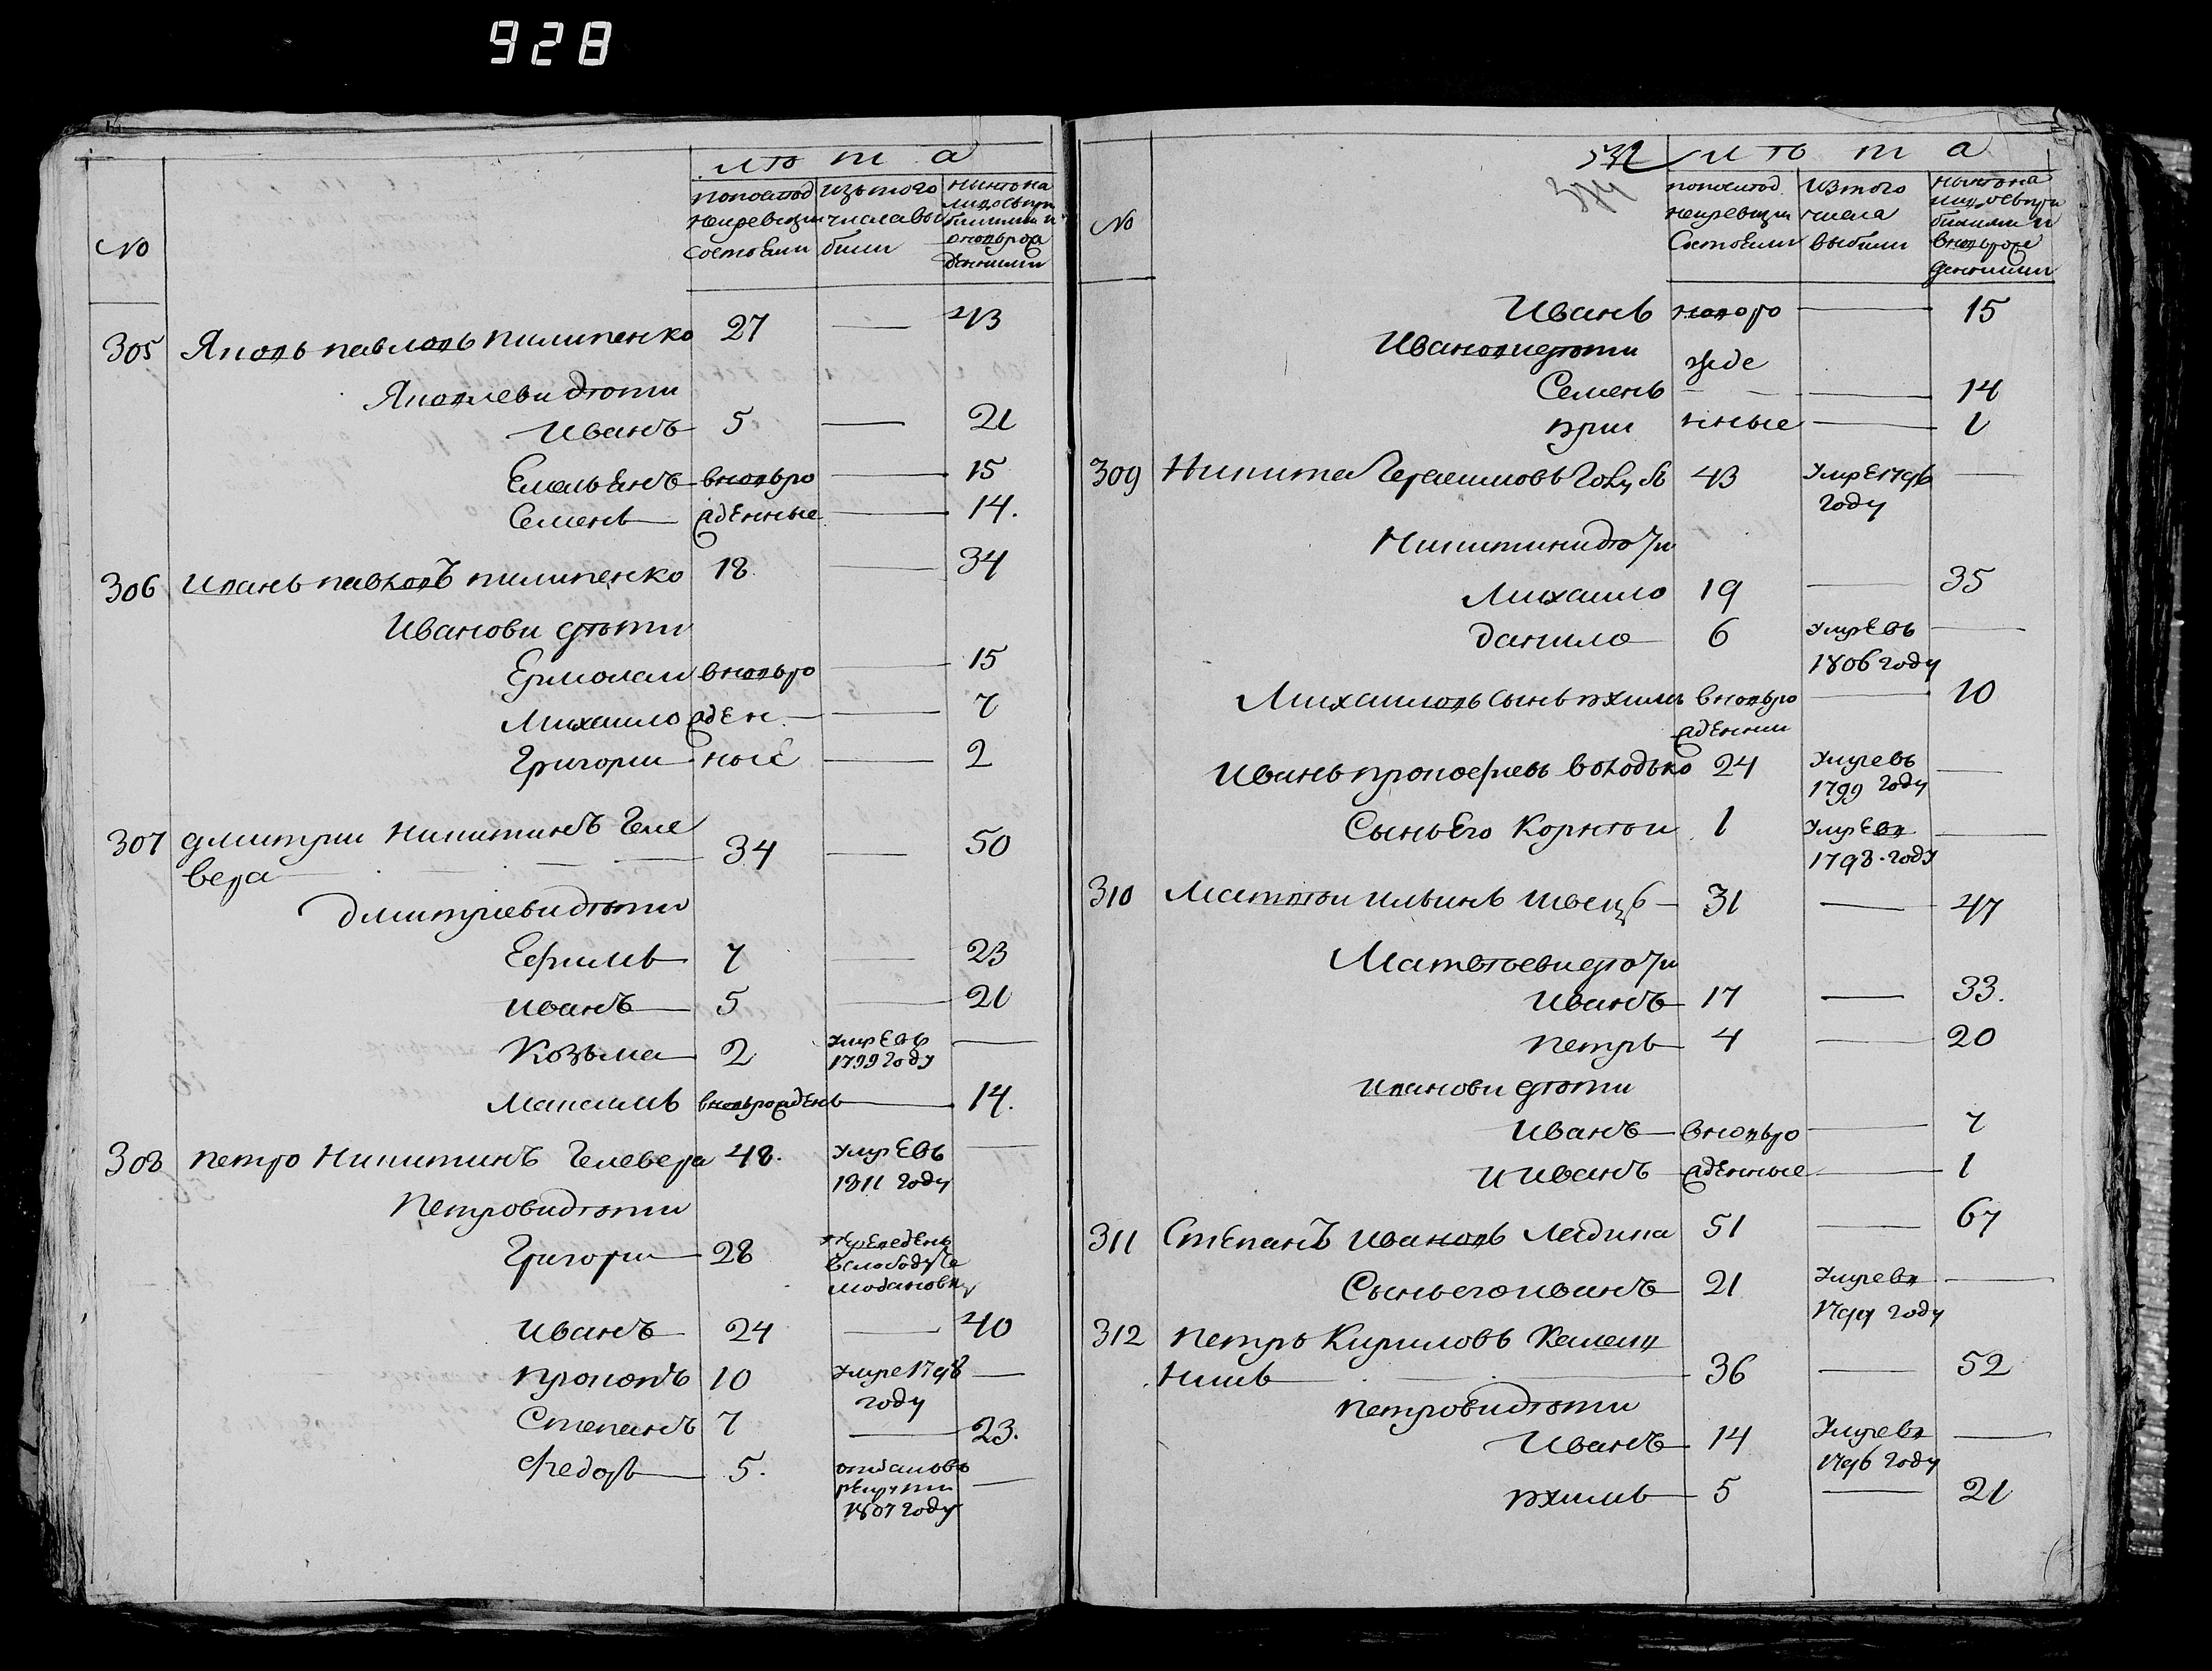 928
№
лѣта
попослѣд
ней ревизи
состояли
изътого
числавы
били
нынѣна
лицосъпри
билими и
вновьрож
деннимы
305 Яковъ павловъ пилипенко 27 — 43
Яковлеви дѣти
Иванъ 5 — 21
Емельянъ вновьро — 15
Семенъ жденные — 14.
306 Иванъ павловъ пилипенко 18 — 34
Иванови дѣти
Ермолаи вновьро — 15
Михаило жден — 7
Григории ные — 2
307 Дмитрии Никитинъ Геле
вера 34 — 50
Дмитриеви дѣти
Ефимъ 7 — 23
Иванъ 5 — 21
Козьма 2 умре въ —
1799 году
Максимъ вновьрожденъ — 14.
308 петро Никитинъ Гелевера 48. умре въ —
1811 году
Петрови дѣти
Григори 28 переведенъ
в слободу
Иванъ 24 — 40
прокопъ 10 умре 1798 —
году
Степанъ 7 — 23.
Федоръ 5. отданъ въ
рекруты —
1807 году
532
№
лѣта
попослѣд
ней ревизи
Состояли
Изтого
числа
выбили
нынѣна
лицосъпри
билими и
вновьрож
денними
Иванъ новоро — 15
Иванови дѣти жде
Семенъ — 14
нные — 1
309 Никита Герасимовъ Голубъ 43 умре 1796 —
году
Никитини дѣти
Михаило 19 — 35
Данило 6 умре въ —
1806 году
Михаиловъ сынъ яхимъ вновьро — 10
жденни
Иванъ прокофиевъ володько 24 умре въ —
1799 году
Сынъ Его Корнѣи 1 умре въ —
1798. году
310 Матвѣи ильинъ швецъ — 31 — 47
Матвѣеви дѣти
Иванъ 17 — 33.
Петръ 4 — 20
Иванови дѣти
Иванъ вновьро — 7
и Иванъ жденные — 1
311 Степанъ Ивановъ Ледина 51 — 67
Сынъ его иванъ 21 умре въ —
1799 году
312 петръ Кириловъ Камен
36 — 52
петрови дѣти
Иванъ 14 умре въ —
1796 году
яхимъ 5 — 21